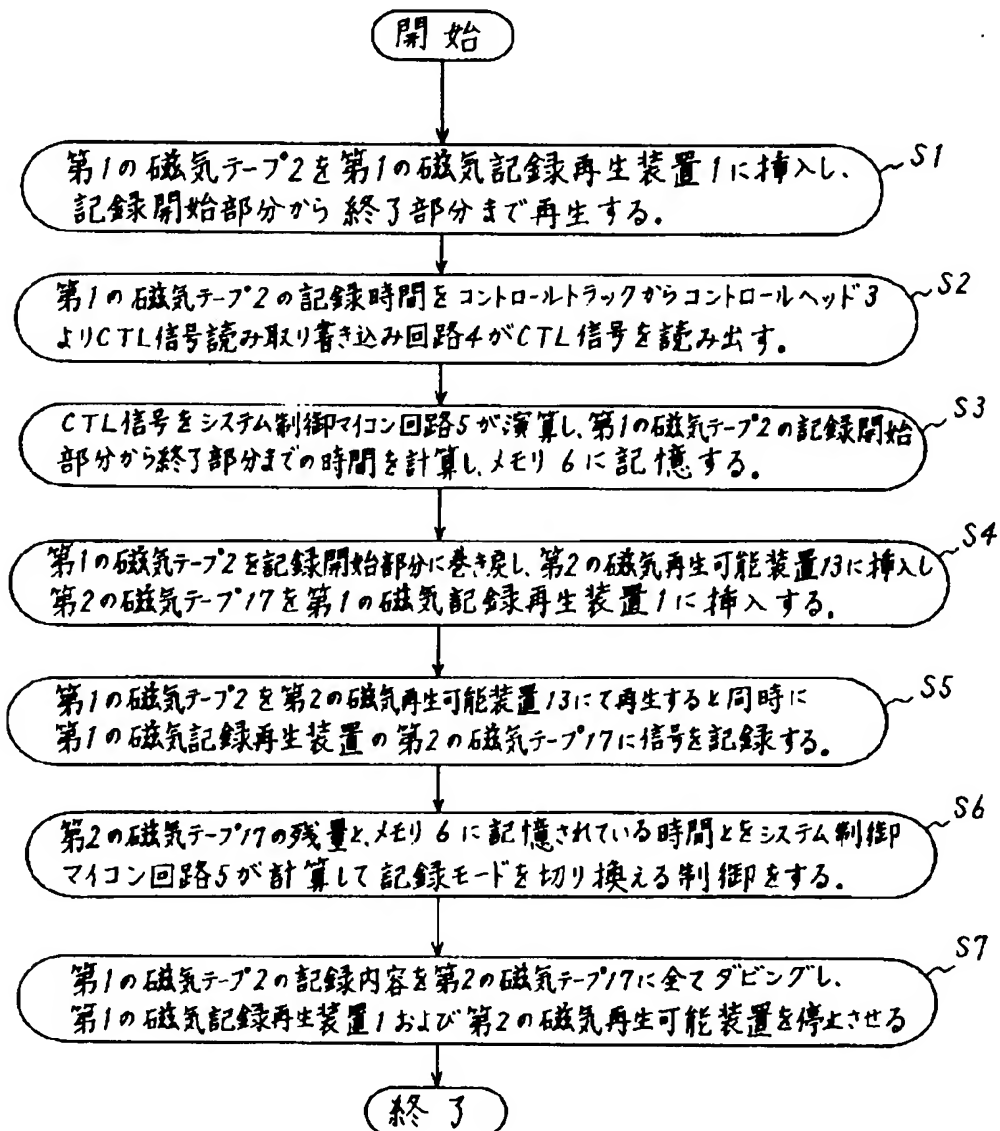 開始
第1の磁気テープ2を第1の磁気記録再生装置1に挿入し、
記録開始部分から終了部分まで再生する。
S1
第1の磁気テープ2の記録時間をコントロールトラックからコントロールヘッド3
よりCTL信号読み取り書き込み回路4がCTL信号を読み出す。
S2
CTL信号をシステム制御マイコン回路5が演算し、第1の磁気テープ2の記録開始
部分から終了部分までの時間を計算し、メモリ6に記憶する。
S3
第1の磁気テープ2を記録開始部分に巻き戻し、第2の磁気再生可能装置13に挿入し
第2の磁気テープ17を第1の磁気記録再生装置1に挿入する。
S4
第1の磁気テープ2を第2の磁気再生可能装置13にて再生すると同時に
第1の磁気記録再生装置の第2の磁気テープ17に信号を記録する。
S5
第2の磁気テープ17の残量と、メモリ6に記憶されている時間とをシステム制御
マイコン回路5が計算して記録モードを切り換える制御をする。
S6
第1の磁気テープ2の記録内容を第2の磁気テープ17に全てダビングし、
第1の磁気記録再生装置1および第2の磁気再生可能装置を停止させる
S7
終了